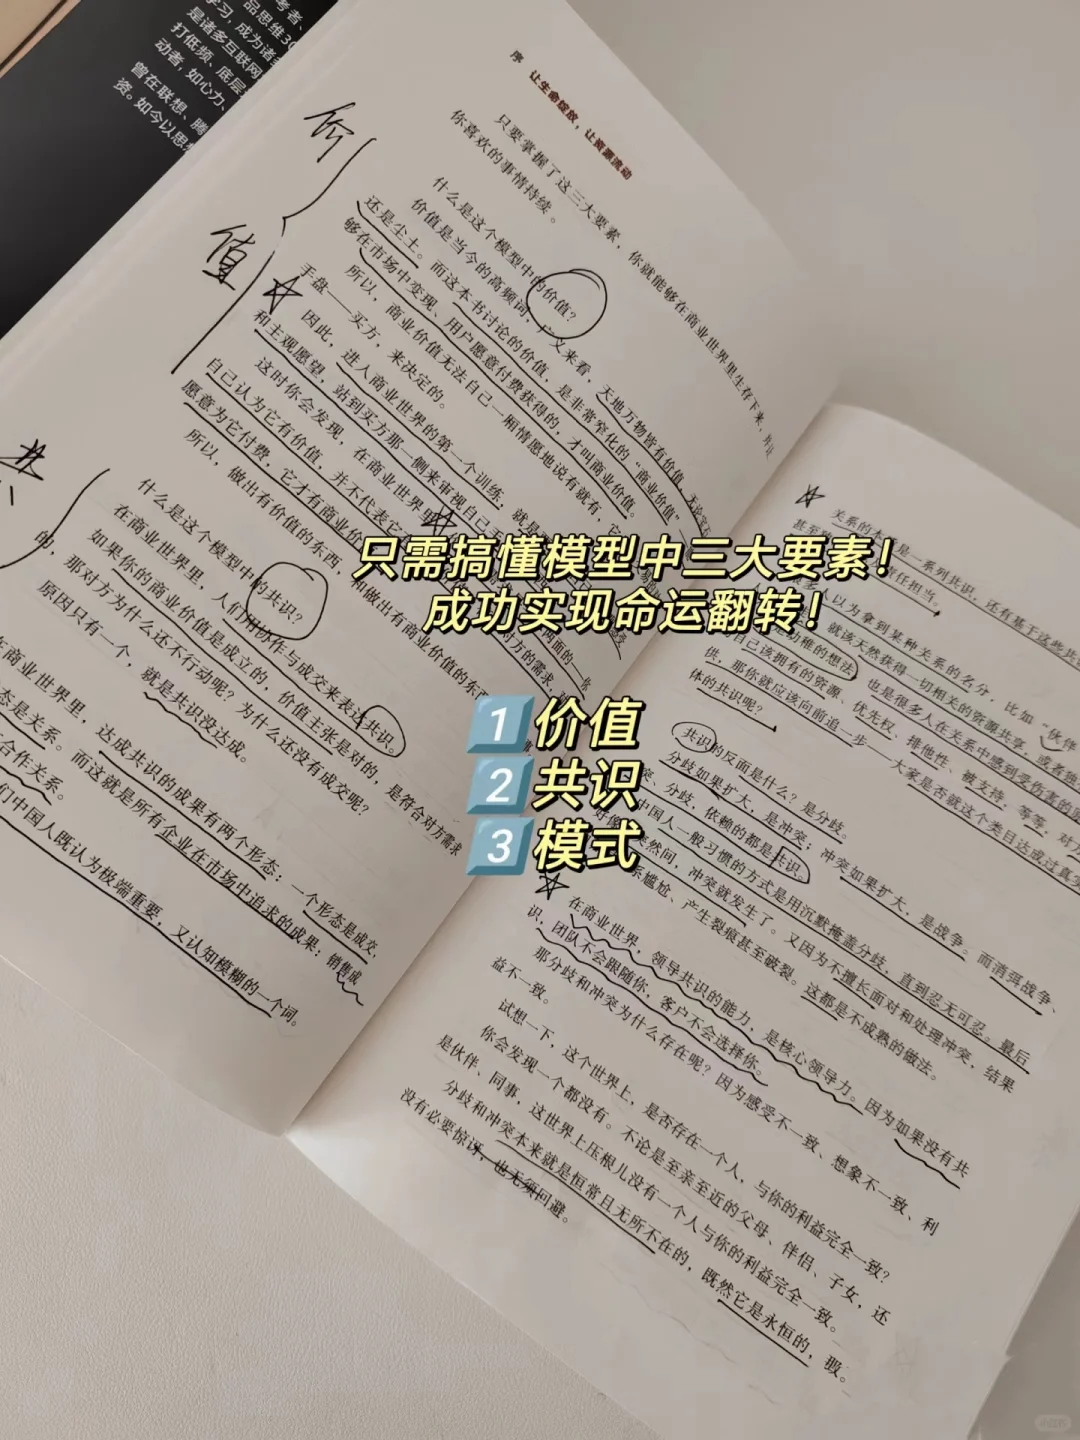 考者、
品思维30
学习，成为诸
是诸多互联网
打低频、底层
动者，如心力、
曾在联想、腾
资。如今以思
序 让生命绽放，让资源流动
只要掌握了这三大要素，你就能够在商业世界里生存下来，并让
你喜欢的事情持续。
什么是这个模型中的价值？
价值是当今的高频词，广义来看，天地万物皆有价值，无论
还是尘土。而这本书讨论的价值，是非常窄化的“商业价值”
够在市场中变现、用户愿意付费获得的，才叫商业价值。
所以，商业价值无法自己一厢情愿地说有就有，它
手盘——买方，来决定的。
因此，进入商业世界的第一个训练，就是
和主观愿望，站到买方那一侧来审视自己
这时你会发现，在商业世界里
自己认为它有价值，并不代表它
愿意为它付费，它才有商业价
所以，做出有价值的东西，和做出有商业价值的东
什么是这个模型中的共识？
在商业世界里，人们用协作与成交来表达共识。
如果你的商业价值是成立的，价值主张是对的，是符合对方需求
的，那对方为什么还不行动呢？为什么还没有成交呢？
原因只有一个，就是共识没达成。
在商业世界里，达成共识的成果有两个形态：一个形态是成交，
态是关系。而这就是所有企业在市场中追求的成果：销售成
合作关系。
们中国人既认为极端重要，又认知模糊的一个词。
价
值
共
只需搞懂模型中三大要素！
成功实现命运翻转！
1 价值
2 共识
3 模式
关系的本质是一系列共识，还有基于这些共
责任担当。
人以为拿到某种关系的名分，比如“伙伴
就该天然获得一切相关的资源共享、或者独
幼稚的想法，也是很多人在关系中感到受伤害的原
自己该拥有的资源、优先权、排他性、被支持，等等，对方
供，那你就应该向前追一步——大家是否就这个类目达成过真
体的共识呢？
共识的反面是什么？是分歧。
分歧如果扩大，是冲突；冲突如果扩大，是战争。而消弭战争、
冲突、分歧，依赖的都是共识。
中国人一般习惯的方式是用沉默掩盖分歧，直到忍无可忍。最后，
好像突然间，冲突就发生了。又因为不擅长面对和处理冲突，结果
关系尴尬、产生裂痕甚至破裂。这都是不成熟的做法。
在商业世界，领导共识的能力，是核心领导力。因为如果没有共
识，团队不会跟随你，客户不会选择你。
那分歧和冲突为什么存在呢？因为感受不一致、想象不一致、利
益不一致。
试想一下，这个世界上，是否存在一个人，与你的利益完全一致？
你会发现一个都没有。不论是至亲至近的父母、伴侣、子女，还
是伙伴、同事，这世界上压根儿没有一个人与你的利益完全一致。
分歧和冲突本来就是恒常且无所不在的，既然它是永恒的，那
没有必要惊讶，也无须回避。
小红书